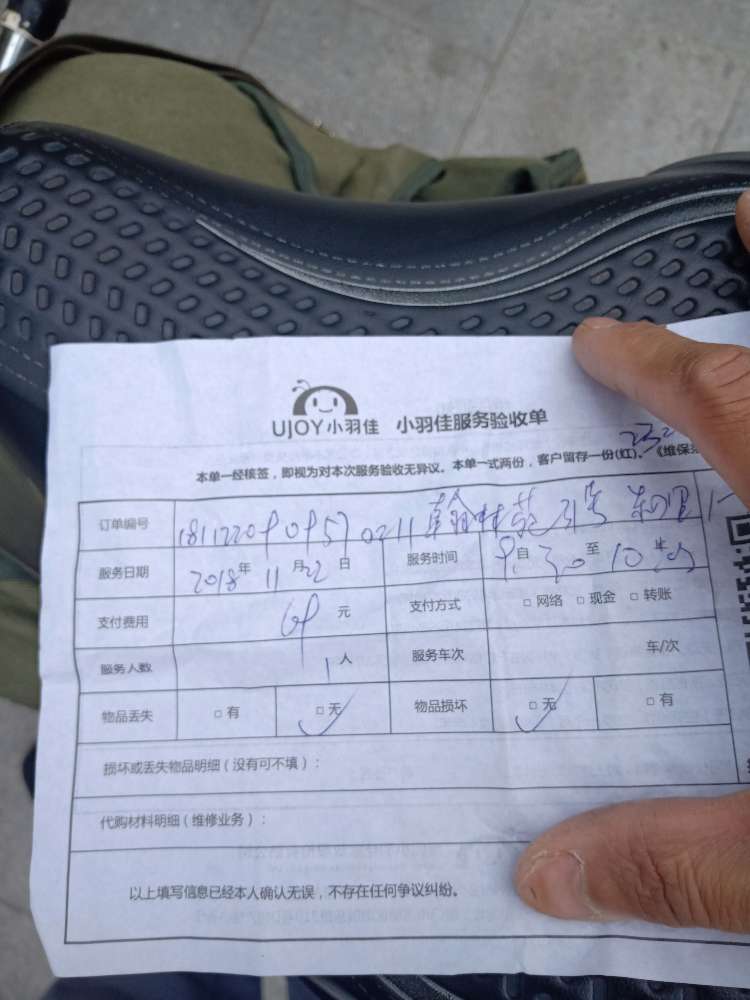 UJOY小羽佳 小羽佳服务验收单
本单一经核签，即视为对本次服务验收无异议。本单一式两份，客户留存一份(红)。《维保
订单编号
服务日期 2018年11月22日 服务时间 自30至10
支付费用 元 支付方式 □网络 □现金 □转账
服务人数 1人 服务车次 车/次
物品丢失 □有 □无 物品损坏 □无 □有
损坏或丢失物品明细（没有可不填）：
代购材料明细（维修业务）：
以上填写信息已经本人确认无误，不存在任何争议纠纷。